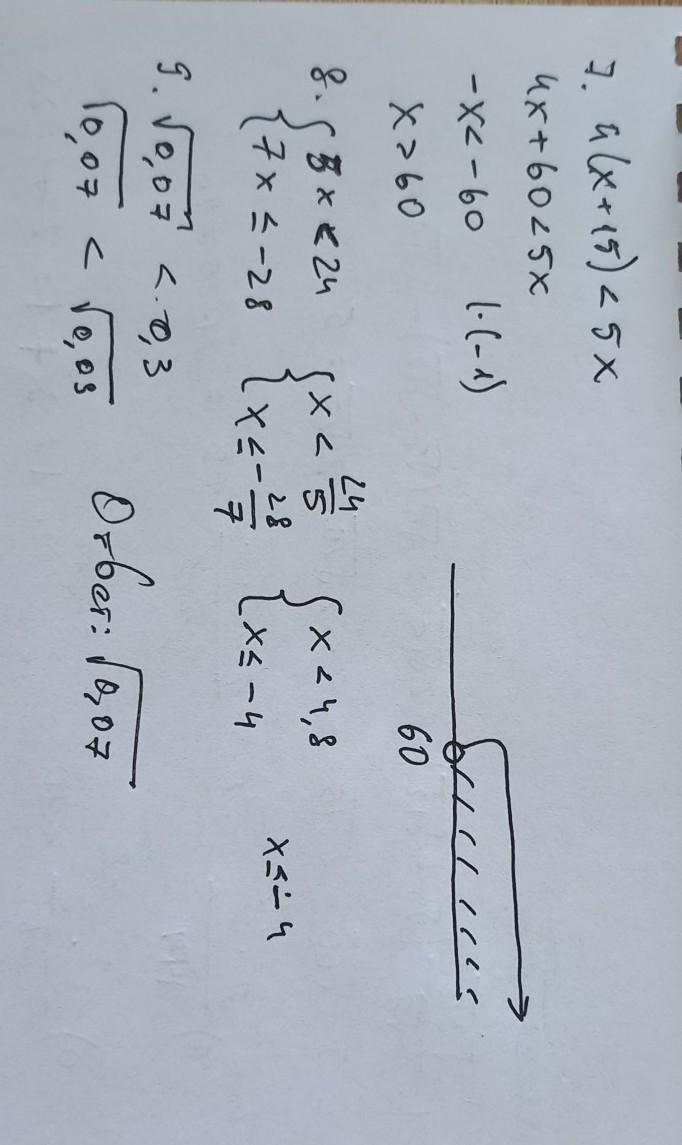 7. 4(x+15)<5x
4x+60<5x
-x<-60 |·(-1)
x>60
60
8. { 5x<24 { x<24/5 { x<4,8
{ 7x≤-28 { x≤-28/7 { x≤-4 x≤-4
9. √0,07 < 0,3
√0,07 < √0,09 Ответ: √0,07